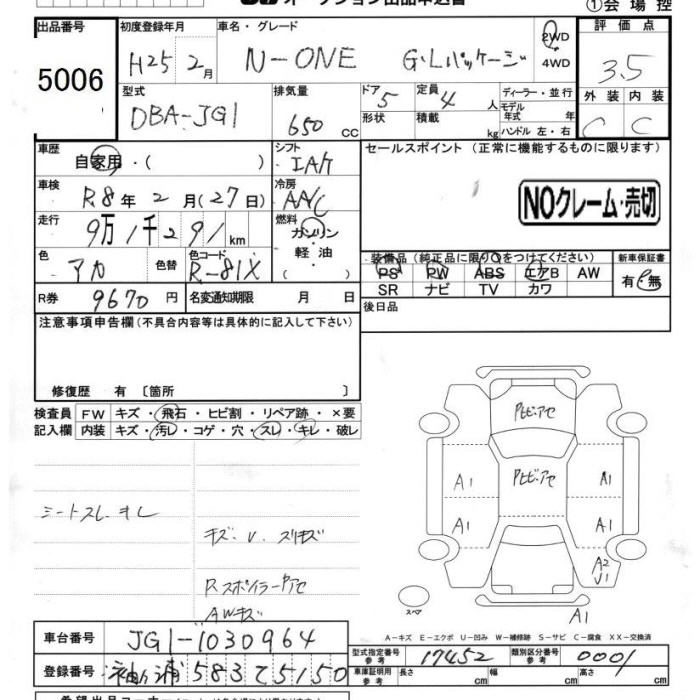 オークション出品申込書
①会場控
出品番号
5006
初度登録年月
H25年 2月
車名・グレード
N-ONE G・Lパッケージ
2WD
4WD
評価点
3.5
外装 内装
C C
型式
DBA-JG1
排気量
650 cc
ドア 5
形状
定員 4人
積載 kg
ディーラー・並行
モデル年式 年式
ハンドル 左・右
車歴
自家用・( )
シフト
IAT
セールスポイント (正常に機能するものに限ります)
NOクレーム・売切
車検
R8年 2月(27日)
冷房
AAC
走行
9万1千291km
燃料
ガソリン
軽油
( )
色
アカ
色替
色コード
R-81X
装備品(純正品に限り○をつけてください)
PS PW ABS エアB AW
SR ナビ TV カワ
新車保証書
有・無
R券 9670円
名変通知期限 月 日
後日品
注意事項申告欄(不具合内容等は具体的に記入して下さい)
修復歴 有 〔箇所 〕
検査員 FW キズ・飛石・ヒビ割・リペア跡・×要
記入欄 内装 キズ・汚レ・コゲ・穴・スレ・キレ・破レ
シートスレ キレ
キズ・U・スリキズ
Rスポイラー アセ
AWキズ
A1
A1
A1
A1
A2
U1
A1
スペア
A-キズ E-エクボ U-凹み W-補修跡 S-サビ C-腐食 XX-交換済
車台番号 JG1-1030964
登録番号 袖ヶ浦 583 て 5150
型式指定番号 参考 17452
類別区分番号 参考 0001
車庫証明用 参考 長さ cm 幅 cm 高さ cm
希望出品コーナー